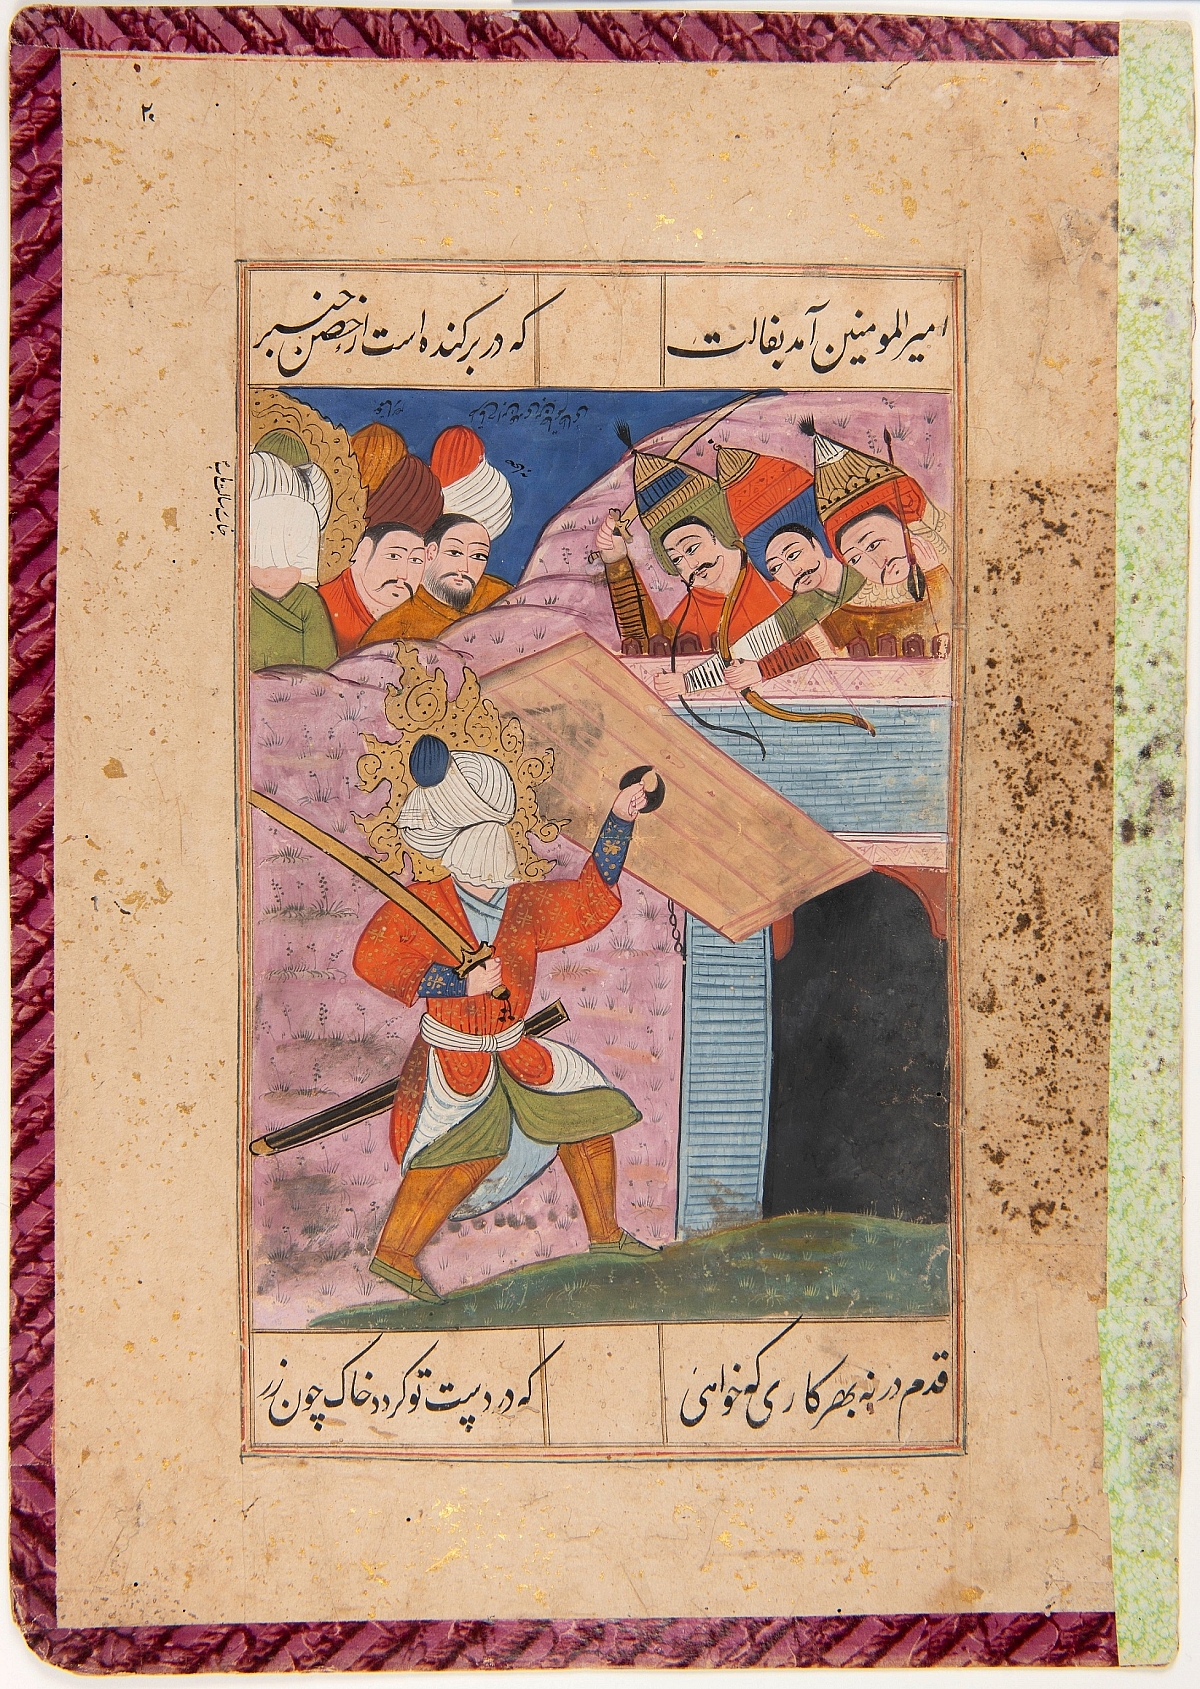 ۲۰
امیرالمومنین آمد بفالت
که در برکنده است از حصن خیبر
قدم در نه بهر کاری که خواهی
که در دست تو کردد خاک چون زر